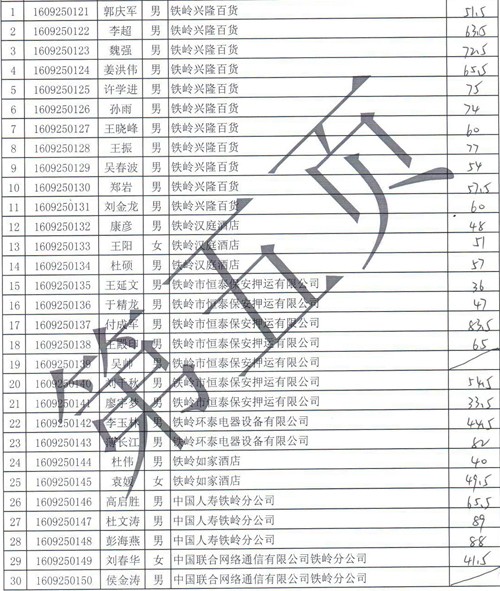 1 1609250121 郭庆军 男 铁岭兴隆百货 51.5
2 1609250122 李超 男 铁岭兴隆百货 63.5
3 1609250123 魏强 男 铁岭兴隆百货 72.5
4 1609250124 姜洪伟 男 铁岭兴隆百货 65.5
5 1609250125 许学进 男 铁岭兴隆百货 75
6 1609250126 孙雨 男 铁岭兴隆百货 74
7 1609250127 王晓峰 男 铁岭兴隆百货 60
8 1609250128 王振 男 铁岭兴隆百货 77
9 1609250129 吴春波 男 铁岭兴隆百货 54
10 1609250130 郑岩 男 铁岭兴隆百货 57.5
11 1609250131 刘金龙 男 铁岭兴隆百货 60
12 1609250132 康彦 男 铁岭汉庭酒店 48
13 1609250133 王阳 女 铁岭汉庭酒店 51
14 1609250134 杜硕 男 铁岭汉庭酒店 57
15 1609250135 王延文 男 铁岭市恒泰保安押运有限公司 36
16 1609250136 于精龙 男 铁岭市恒泰保安押运有限公司 47
17 1609250137 付成军 男 铁岭市恒泰保安押运有限公司 83.5
18 1609250138 王殿印 男 铁岭市恒泰保安押运有限公司 65
19 1609250139 吴帅 男 铁岭市恒泰保安押运有限公司
20 1609250140 刘千秋 男 铁岭市恒泰保安押运有限公司 54.5
21 1609250141 廖宇梦 男 铁岭市恒泰保安押运有限公司 33.5
22 1609250142 李玉林 男 铁岭环泰电器设备有限公司 44.5
23 1609250143 长江 男 铁岭环泰电器设备有限公司 82
24 1609250144 杜伟 男 铁岭如家酒店 40
25 1609250145 袁媛 女 铁岭如家酒店 49.5
26 1609250146 高启胜 男 中国人寿铁岭分公司 65.5
27 1609250147 杜文涛 男 中国人寿铁岭分公司 89
28 1609250148 彭海燕 男 中国人寿铁岭分公司 88
29 1609250149 刘春华 女 中国联合网络通信有限公司铁岭分公司 41.5
30 1609250150 侯金涛 男 中国联合网络通信有限公司铁岭分公司
第五页